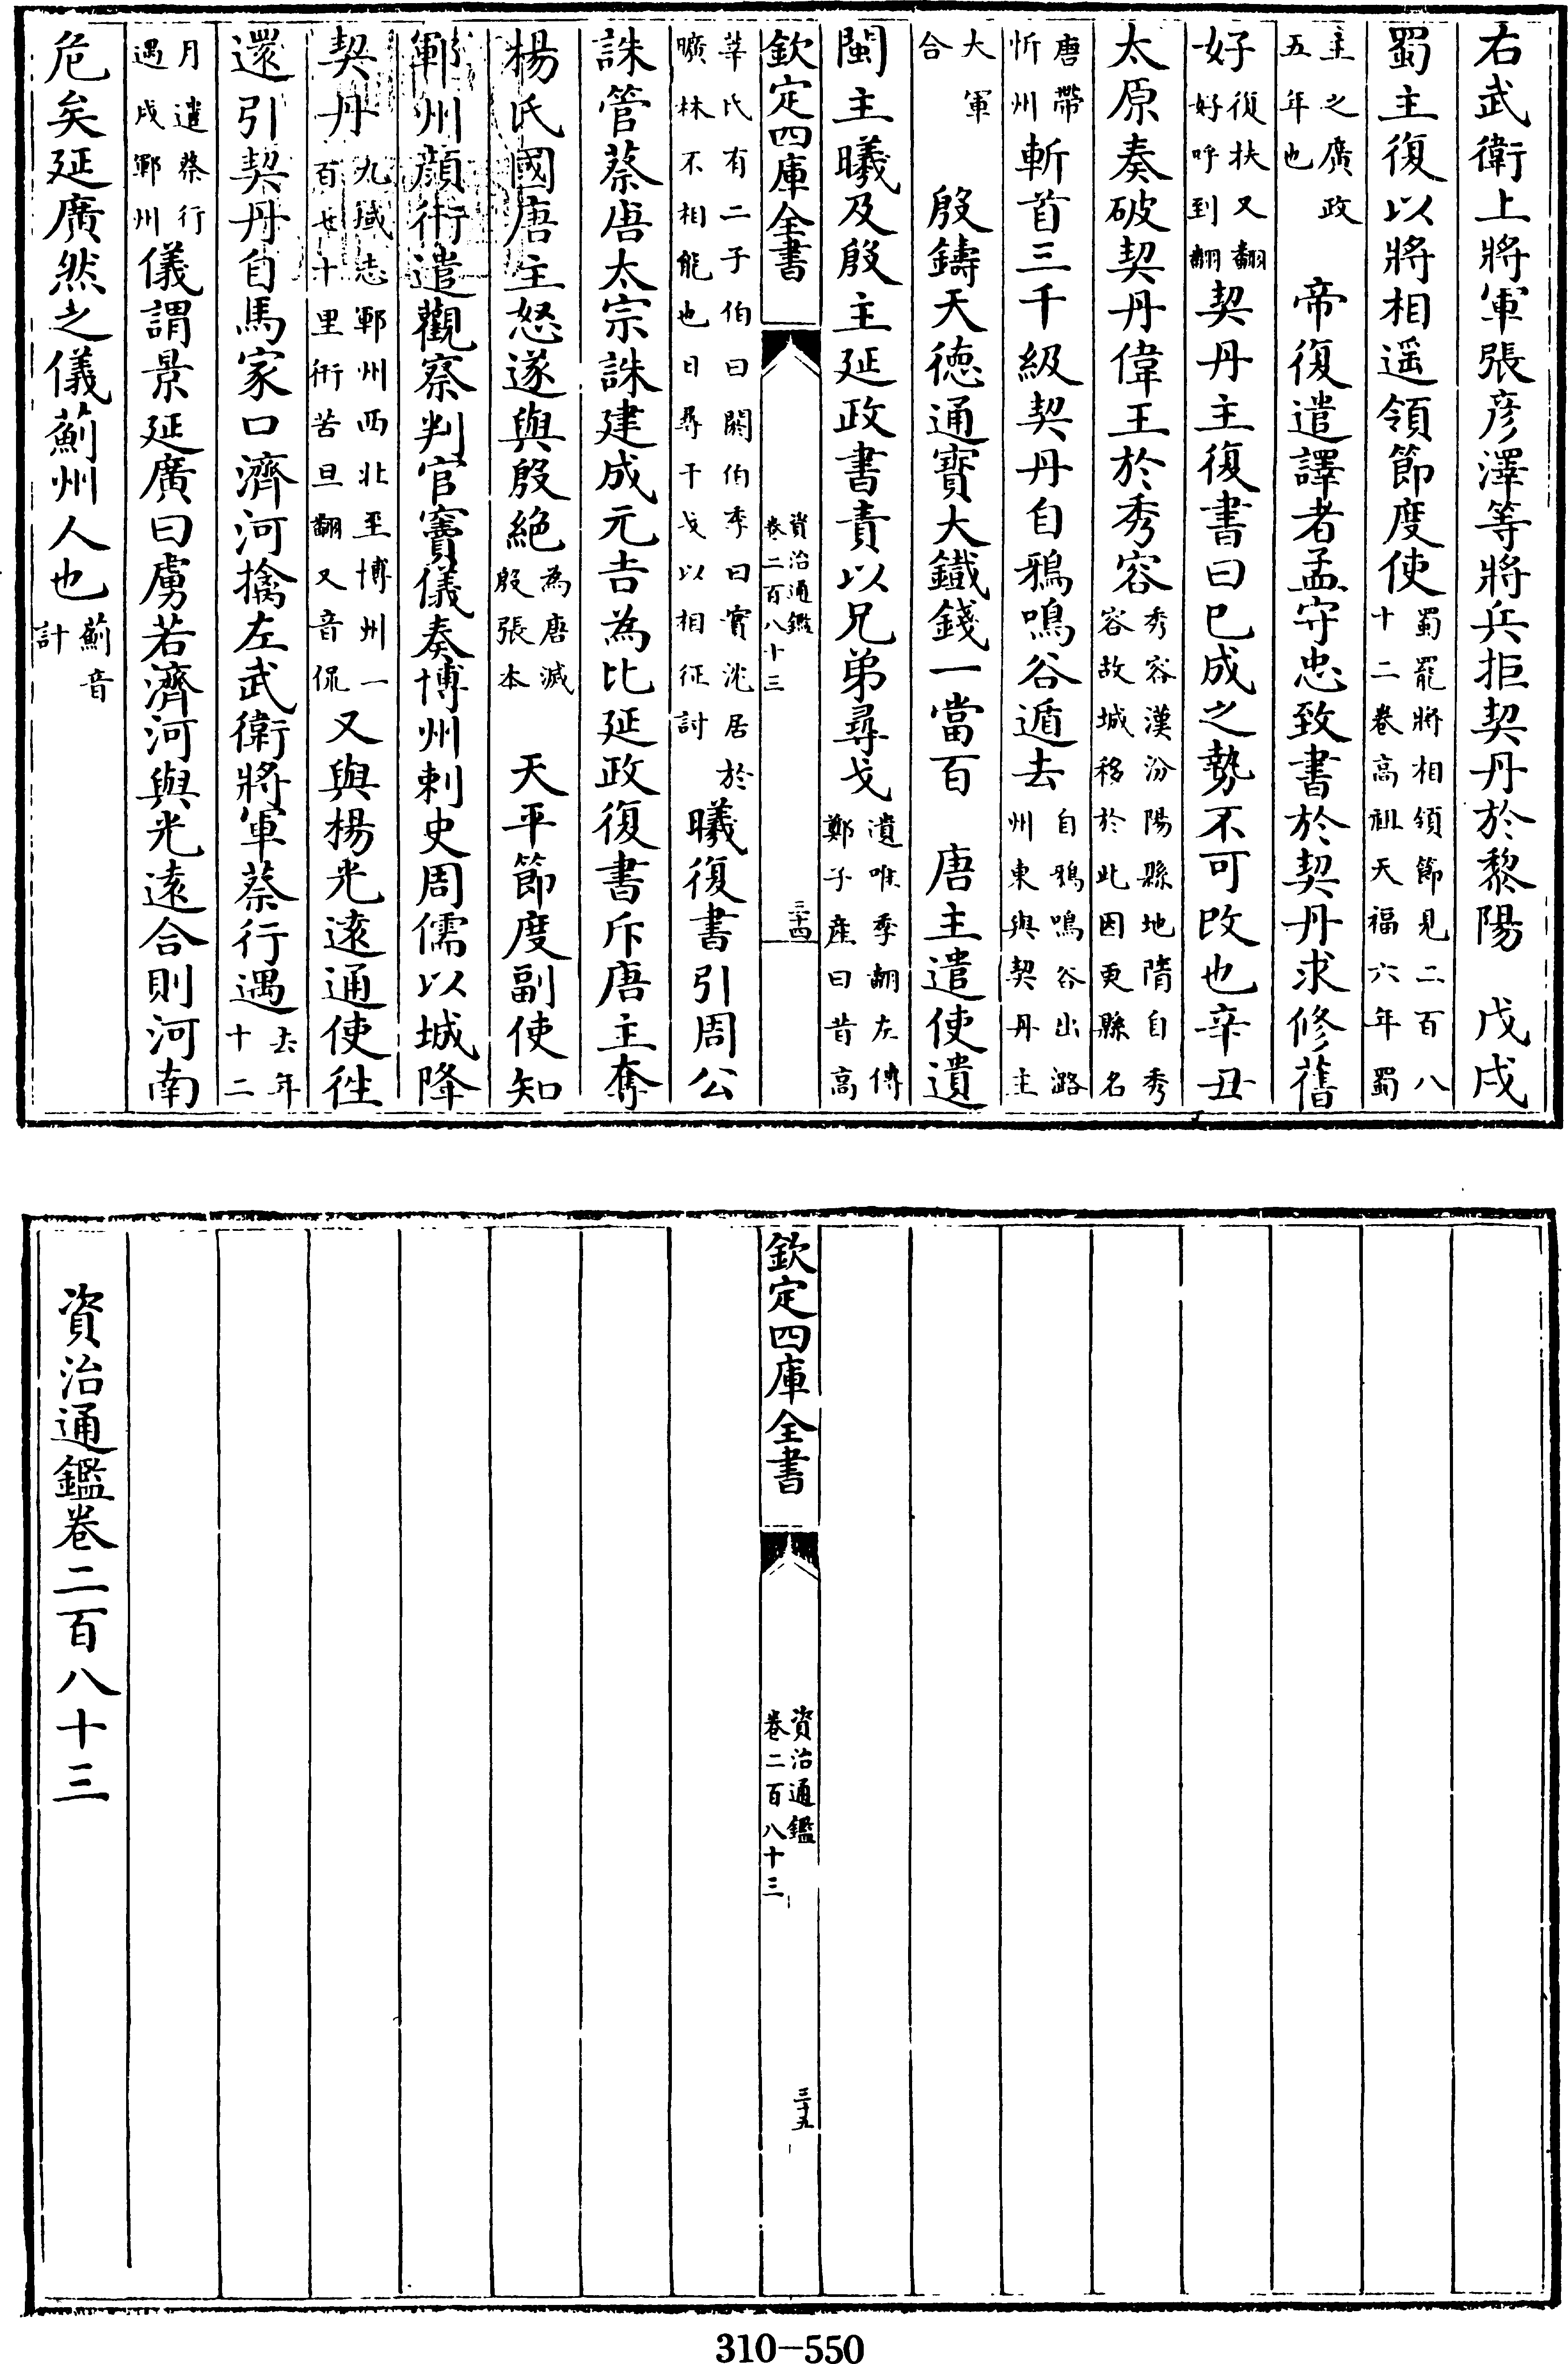 右武衛上將軍張彦澤等將兵拒契丹於黎陽　戊戌
蜀主復以將相遥領節度使蜀罷將相領節見二百八十二卷高祖天福六年蜀
主之廣政五年也　帝復遣譯者孟守忠致書於契丹求修舊
好復扶又翻好呼到翻契丹主復書曰已成之勢不可改也辛丑
太原奏破契丹偉王於秀容秀容漢汾陽縣地隋自秀容故城移於此因更縣名
唐帶忻州斬首三千級契丹自鴉鳴谷遁去自鴉鳴谷出潞州東與契丹主
大軍合　殷鑄天德通寶大鐵錢一當百　唐主遣使遺
閩主曦及殷主延政書責以兄弟尋戈遺唯季翻左傳鄭子產曰昔高
欽定四庫全書　資治通鑑卷二百八十三　三十四
莘氏有二子伯曰閼伯季曰實沈居於曠林不相能也日尋干戈以相征討曦復書引周公
誅管蔡唐太宗誅建成元吉為比延政復書斥唐主奪
楊氏國唐主怒遂與殷絶為唐滅殷張本　天平節度副使知
鄆州顔衎遣觀察判官竇儀奏博州刺史周儒以城降
契丹九域志鄆州西北至博州一百七十里衎苦旦翻又音侃又與楊光遠通使往
還引契丹自馬家口濟河擒左武衛將軍蔡行遇去年十二
月遣蔡行遇戍鄆州儀謂景延廣曰虜若濟河與光遠合則河南
危矣延廣然之儀薊州人也薊音計
欽定四庫全書　資治通鑑卷二百八十三　三十五
資治通鑑卷二百八十三
310-550